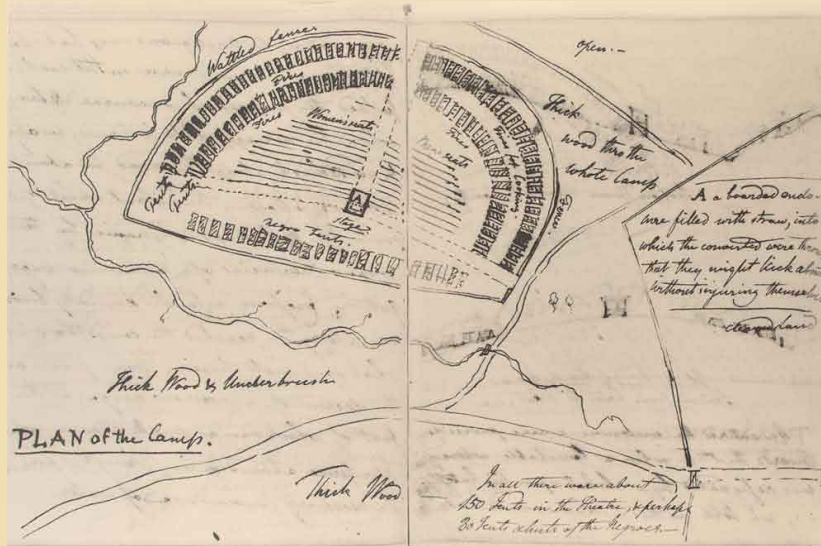 Wattled fence
Open.-
Fires
Fires
Women's seats
Tents
Tents
A
Stage
Negro Tents.
Men's seats
Fires
Fires for Cooking
Fence
Thick
wood thro the
whole Camp
A a boarded enclo-
sure filled with straw, into
which the converted were thrown
that they might kick about
without injuring themselves
cleared Land
Thick Wood & Underbrush
PLAN of the Camp.
Thick Wood
In all there were about
150 Tents in the Theatre, & perhaps
30 Tents & huts of the Negroes -